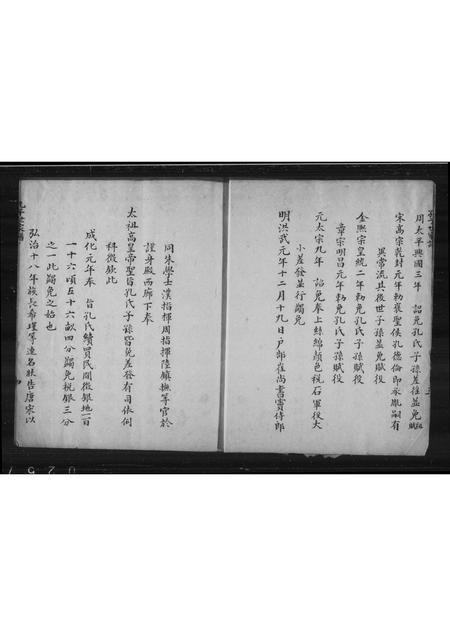 周太平興國三年 詔免孔子子孫差徭並免賦
宋高宗乾封元年勅褒聖侯孔德倫即承胤嗣有
異常流其後世子孫並免賦役
金熙宗皇統二年勅免孔氏子孫賦役
章宗明昌元年勅免孔氏子孫賦役
元太宗九年 詔免奉上絲綿顏色稅石軍役大
小差發並行蠲免
明洪武元年十二月十九日戶部在尚書賓侍郎
同朱學士濮指揮周指揮陸鎮撫等官於
謹身殿西廊下奉
太祖高皇帝聖旨孔氏子孫皆免差發有司依何
科徵欽此
成化元年奉 旨孔氏續買民間徵銀地一百
一十六頃五十六畝四分蠲免稅銀三分
之一此蠲免之始也
弘治十八年族長希瑾等連名狀告唐宋以